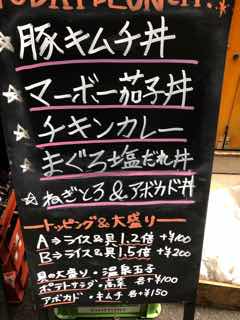 TODAY LUNCH!
豚キムチ丼
マーボー茄子丼
チキンカレー
まぐろ塩だれ丼
ねぎとろ&アボカド丼
トッピング&大盛り
A⇒ライス&具1.2倍 +¥100
B⇒ライス&具1.5倍 +¥200
具の大盛り・温泉玉子
ポテトサラダ・高菜 各+¥100
アボカド・キムチ 各+¥150